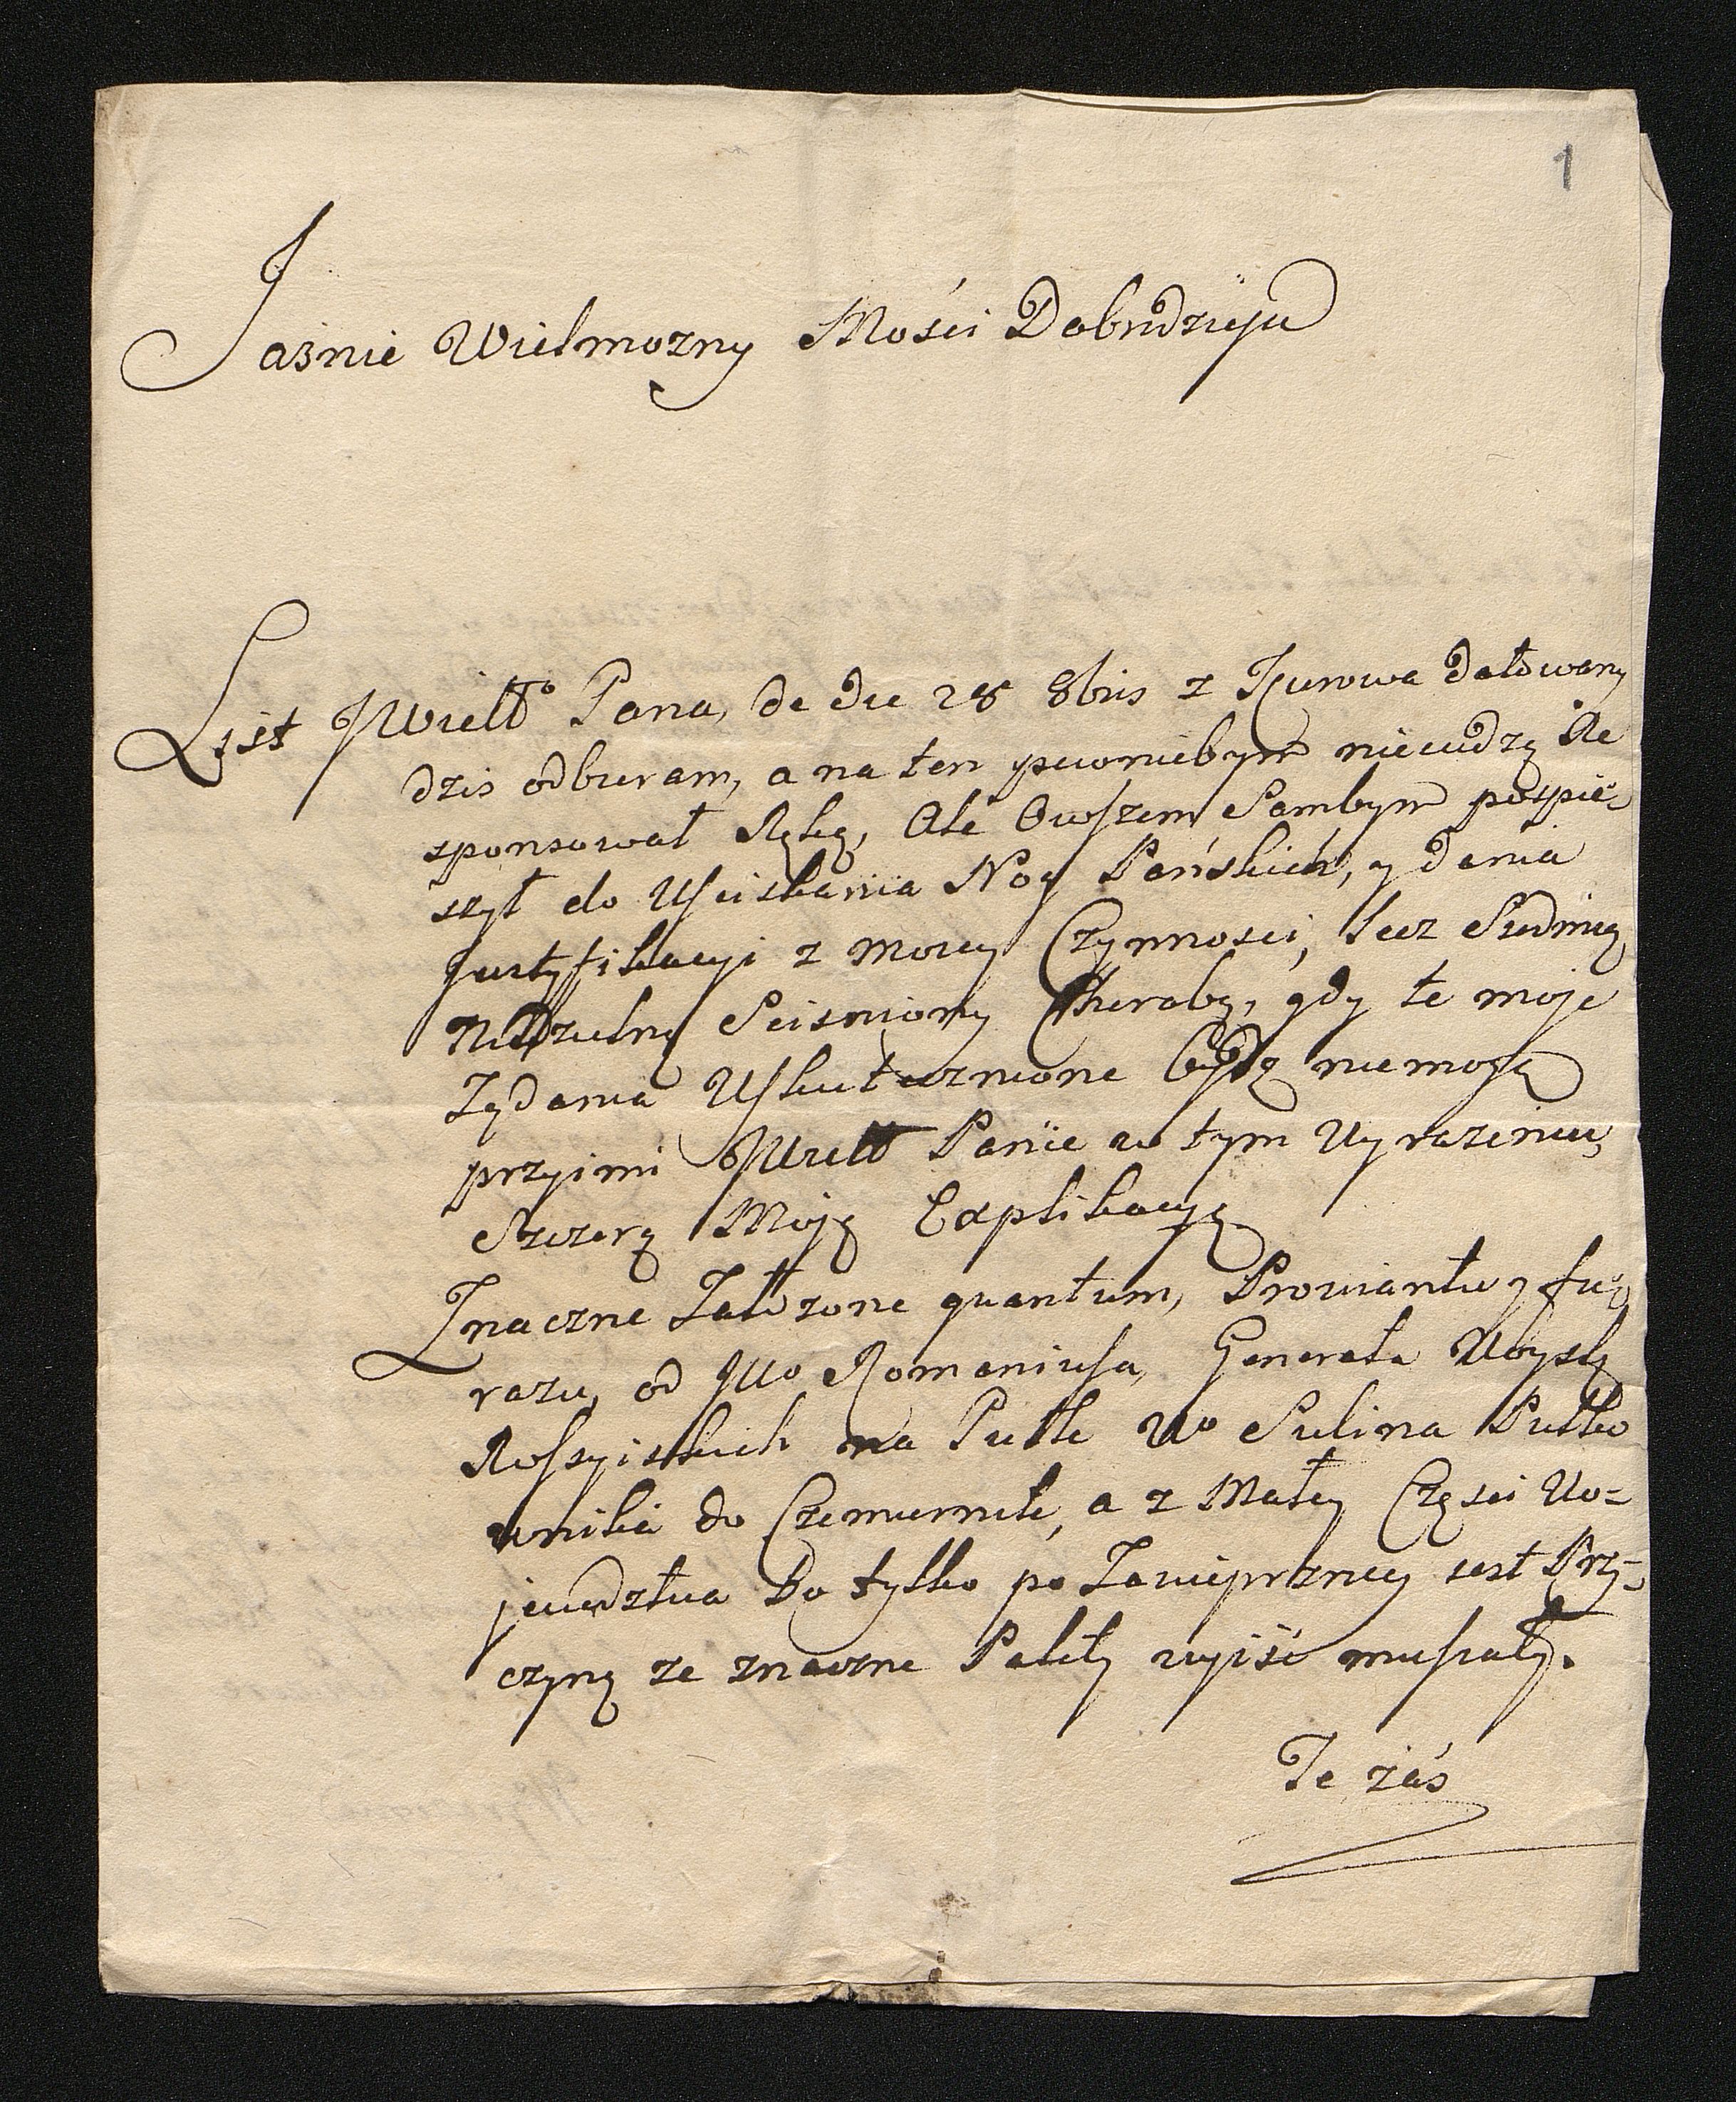 1
Jaśnie Wielmozny Mości Dobrdzieju
List JWiełł° Pana, de die 28 8bris z Kurowa datowany
dzis odbieram, a na ten pewniebym niecudzą Re
sponsował Ręką, Ale Owszem Sambym pospie-
szył do Uściskania Nog Pańskich, y dania
Justyfikacyi z moiey Czynności, lecz Siedmią
Niedzielną Sciśniony Chorobą, gdy te moje
Ządania Uskutecznione bydz niemogą
przyimi JWiełł Panie w tym Wyrazeniu,
Szczerą Moję Explikacyą
Znaczne Załozone quantum, Prowiantu y fu-
razu, od JWo Romaniusa, Generała Woysk
Rossyiskich na Pułk Wo Sulina Pułko
wnika do Czemiernik, a z Małey Częsci Wo=
jewdztwa Bo tylko po Zawieprzney iest Przy-
czyną ze znaczne Palety wyiść musiały.
Te zaś